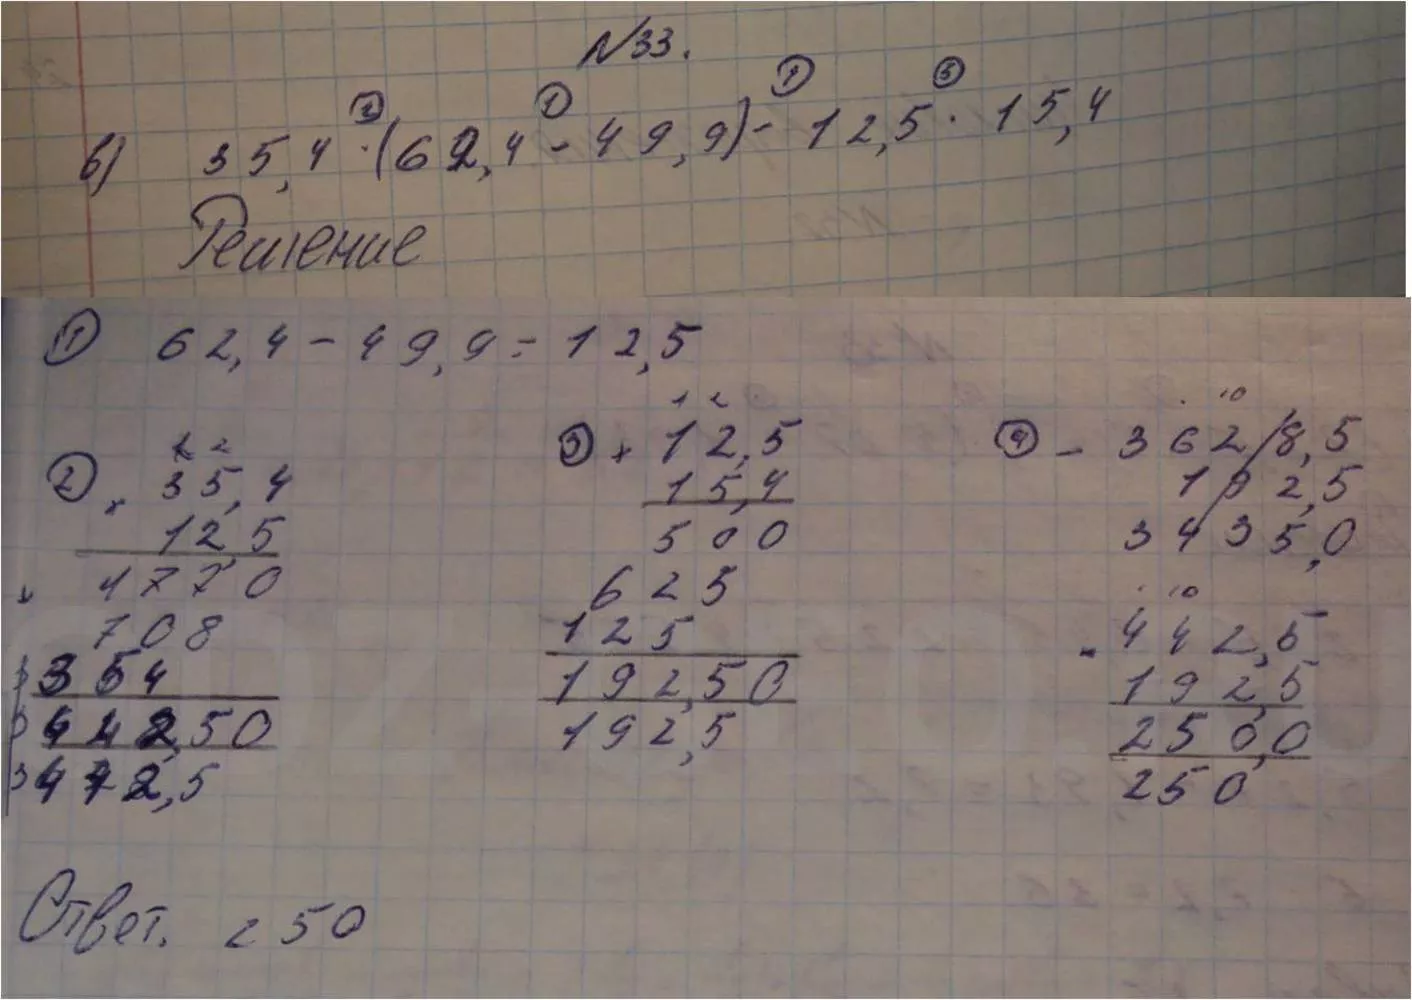 №33.
в) 35,4 · (62,4 - 49,9) - 12,5 · 15,4
Решение
① 62,4 - 49,9 = 12,5
② × 35,4
12,5
1770
708
354
442,50
442,5
③ × 12,5
15,4
500
625
125
192,50
192,5
④ - 3628,5
192,5
3435,0
- 442,5
192,5
250,0
250
Ответ. 250